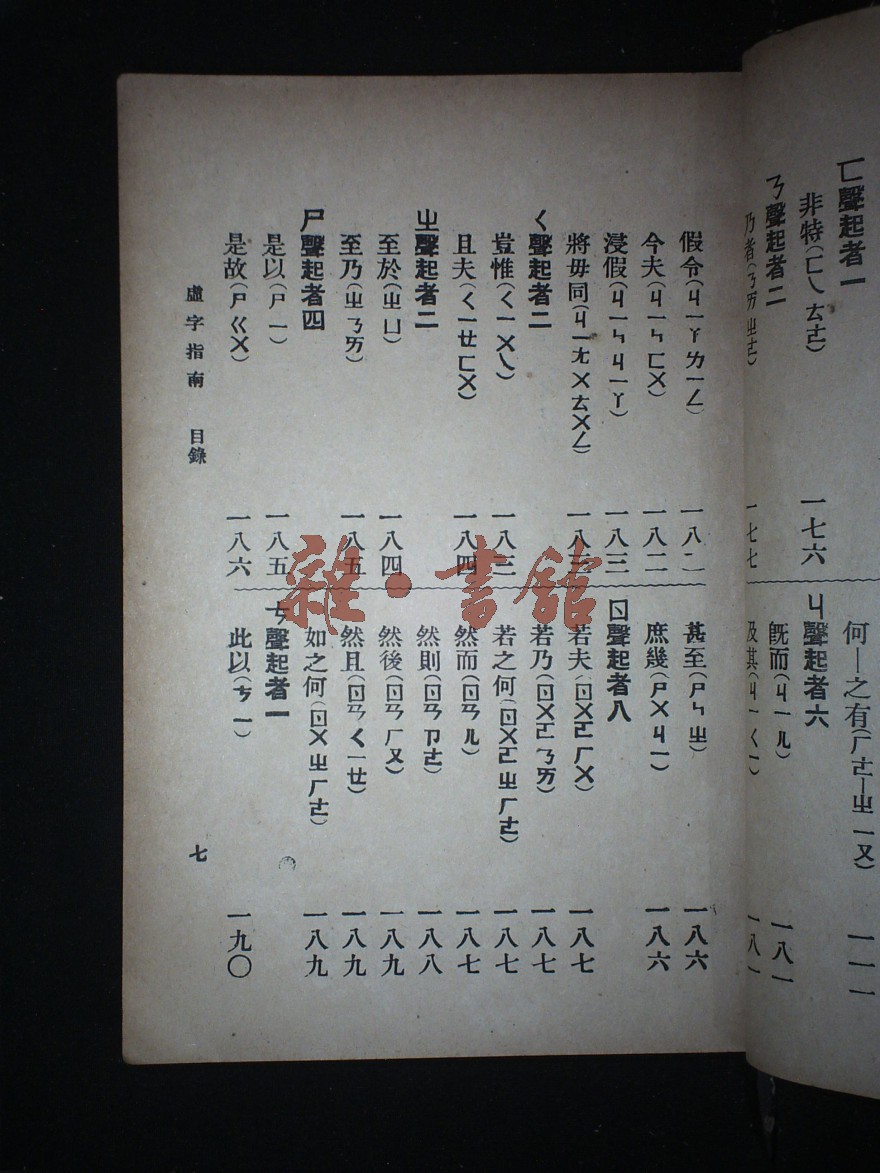 ㄈ聲起者一
非特(ㄈㄟ ㄊㄜ) 一七六
ㄋ聲起者二
乃者(ㄋㄞ ㄓㄜ) 一七七
何—之有(ㄏㄜ—ㄓ ㄧㄡ) 一一一
ㄐ聲起者六
既而(ㄐㄧ ㄦ) 一八一
及其(ㄐㄧ ㄑㄧ) 一八一
假令(ㄐㄧㄚ ㄌㄧㄥ) 一八二
今夫(ㄐㄧㄣ ㄈㄨ) 一八二
浸假(ㄐㄧㄣ ㄐㄧㄚ) 一八三
將毋同(ㄐㄧㄤ ㄨ ㄊㄨㄥ) 一八三
ㄑ聲起者二
豈惟(ㄑㄧ ㄨㄟ) 一八三
且夫(ㄑㄧㄝ ㄈㄨ) 一八四
ㄓ聲起者二
至於(ㄓ ㄩ) 一八四
至乃(ㄓ ㄋㄞ) 一八五
ㄕ聲起者四
是以(ㄕ ㄧ) 一八五
是故(ㄕ ㄍㄨ) 一八六
甚至(ㄕㄣ ㄓ) 一八六
庶幾(ㄕㄨ ㄐㄧ) 一八六
ㄖ聲起者八
若夫(ㄖㄨㄛ ㄏㄨ) 一八七
若乃(ㄖㄨㄛ ㄋㄞ) 一八七
若之何(ㄖㄨㄛ ㄓ ㄏㄜ) 一八七
然而(ㄖㄢ ㄦ) 一八七
然則(ㄖㄢ ㄗㄜ) 一八八
然後(ㄖㄢ ㄏㄡ) 一八九
然且(ㄖㄢ ㄑㄧㄝ) 一八九
如之何(ㄖㄨ ㄓ ㄏㄜ) 一八九
ㄘ聲起者一
此以(ㄘ ㄧ) 一九〇
虛字指南 目錄 七
雜·書館